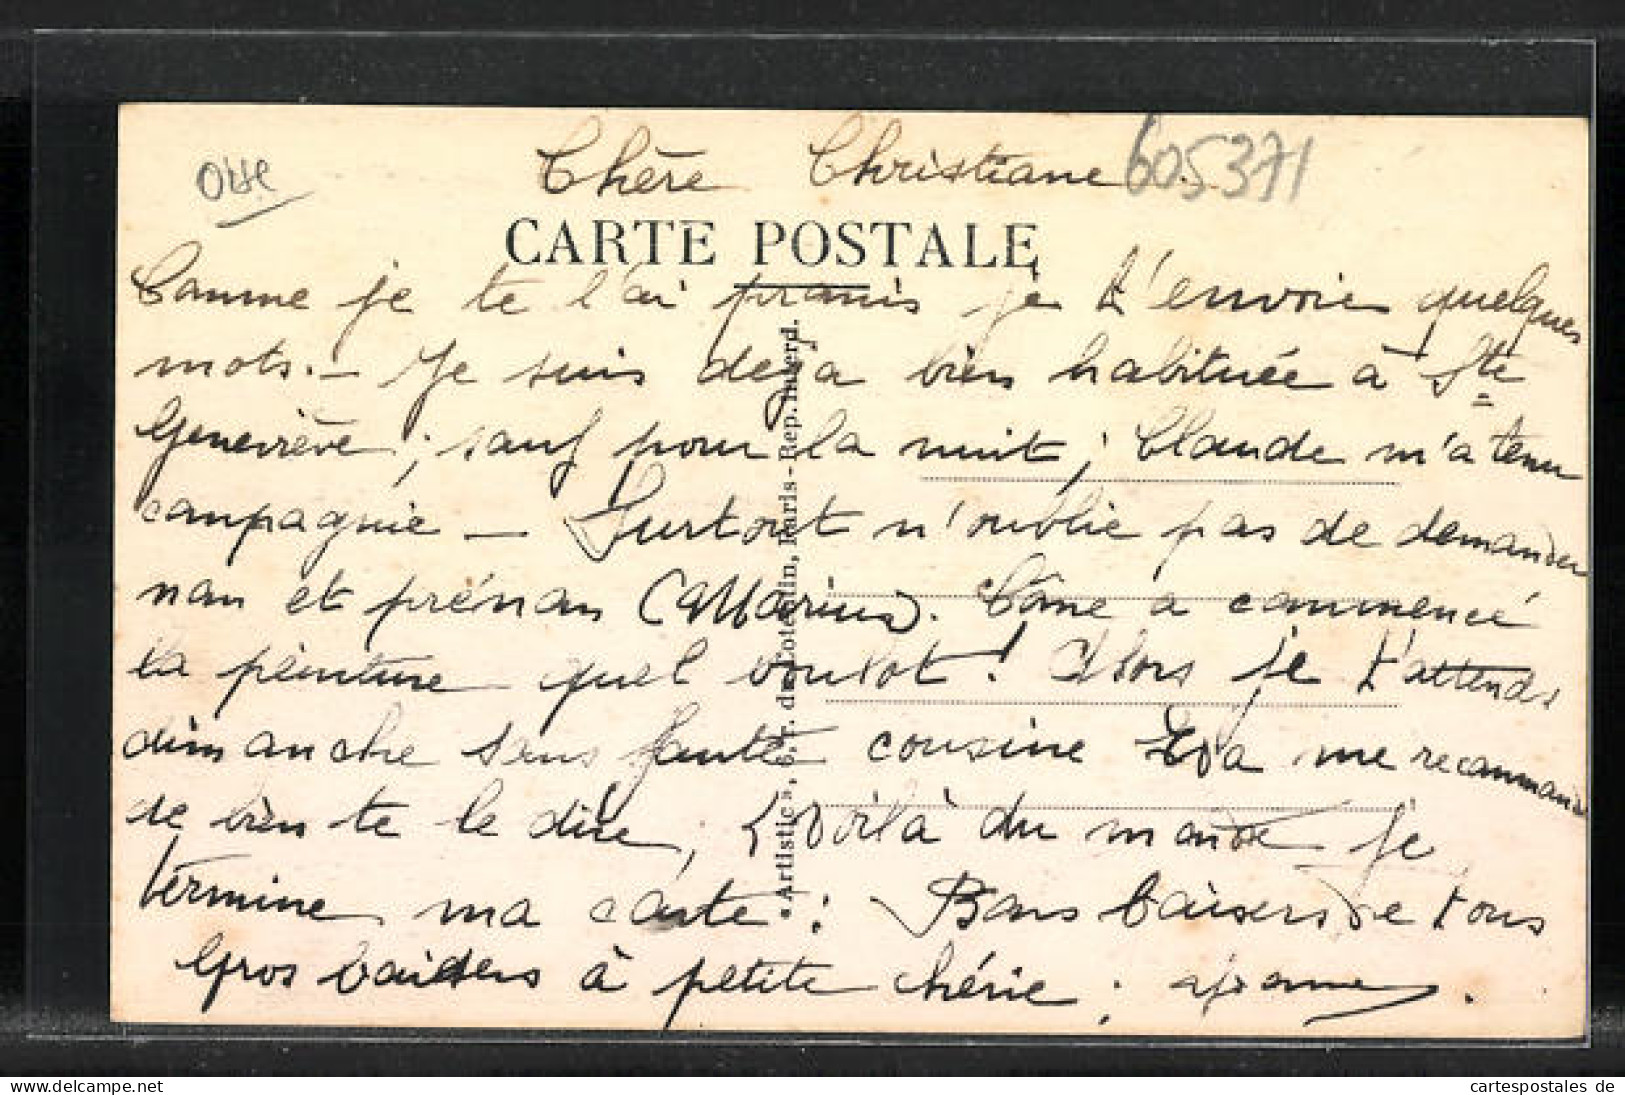 Oise
Chère Christiane
605371
CARTE POSTALE
Comme je te l'ai promis je t'envoie quelques
mots. - Je suis deja bien habituée à Ste
Geneviève ; sauf pour la nuit ; Claude m'a tenu
compagnie - Surtout n'oublie pas de demander
nom et prénom (Marius). Côme a commencé
la peinture quel boulot ! Alors je t'attends
dimanche sans faute cousine Eva me recommande
de bien te le dire ; Voilà du monde je
termine ma carte : Bons baisers de tous
Gros baisers à petite chérie ;
"Artistic", 6, r. du Cotentin, Paris - Rep. interd.
cartespostales de